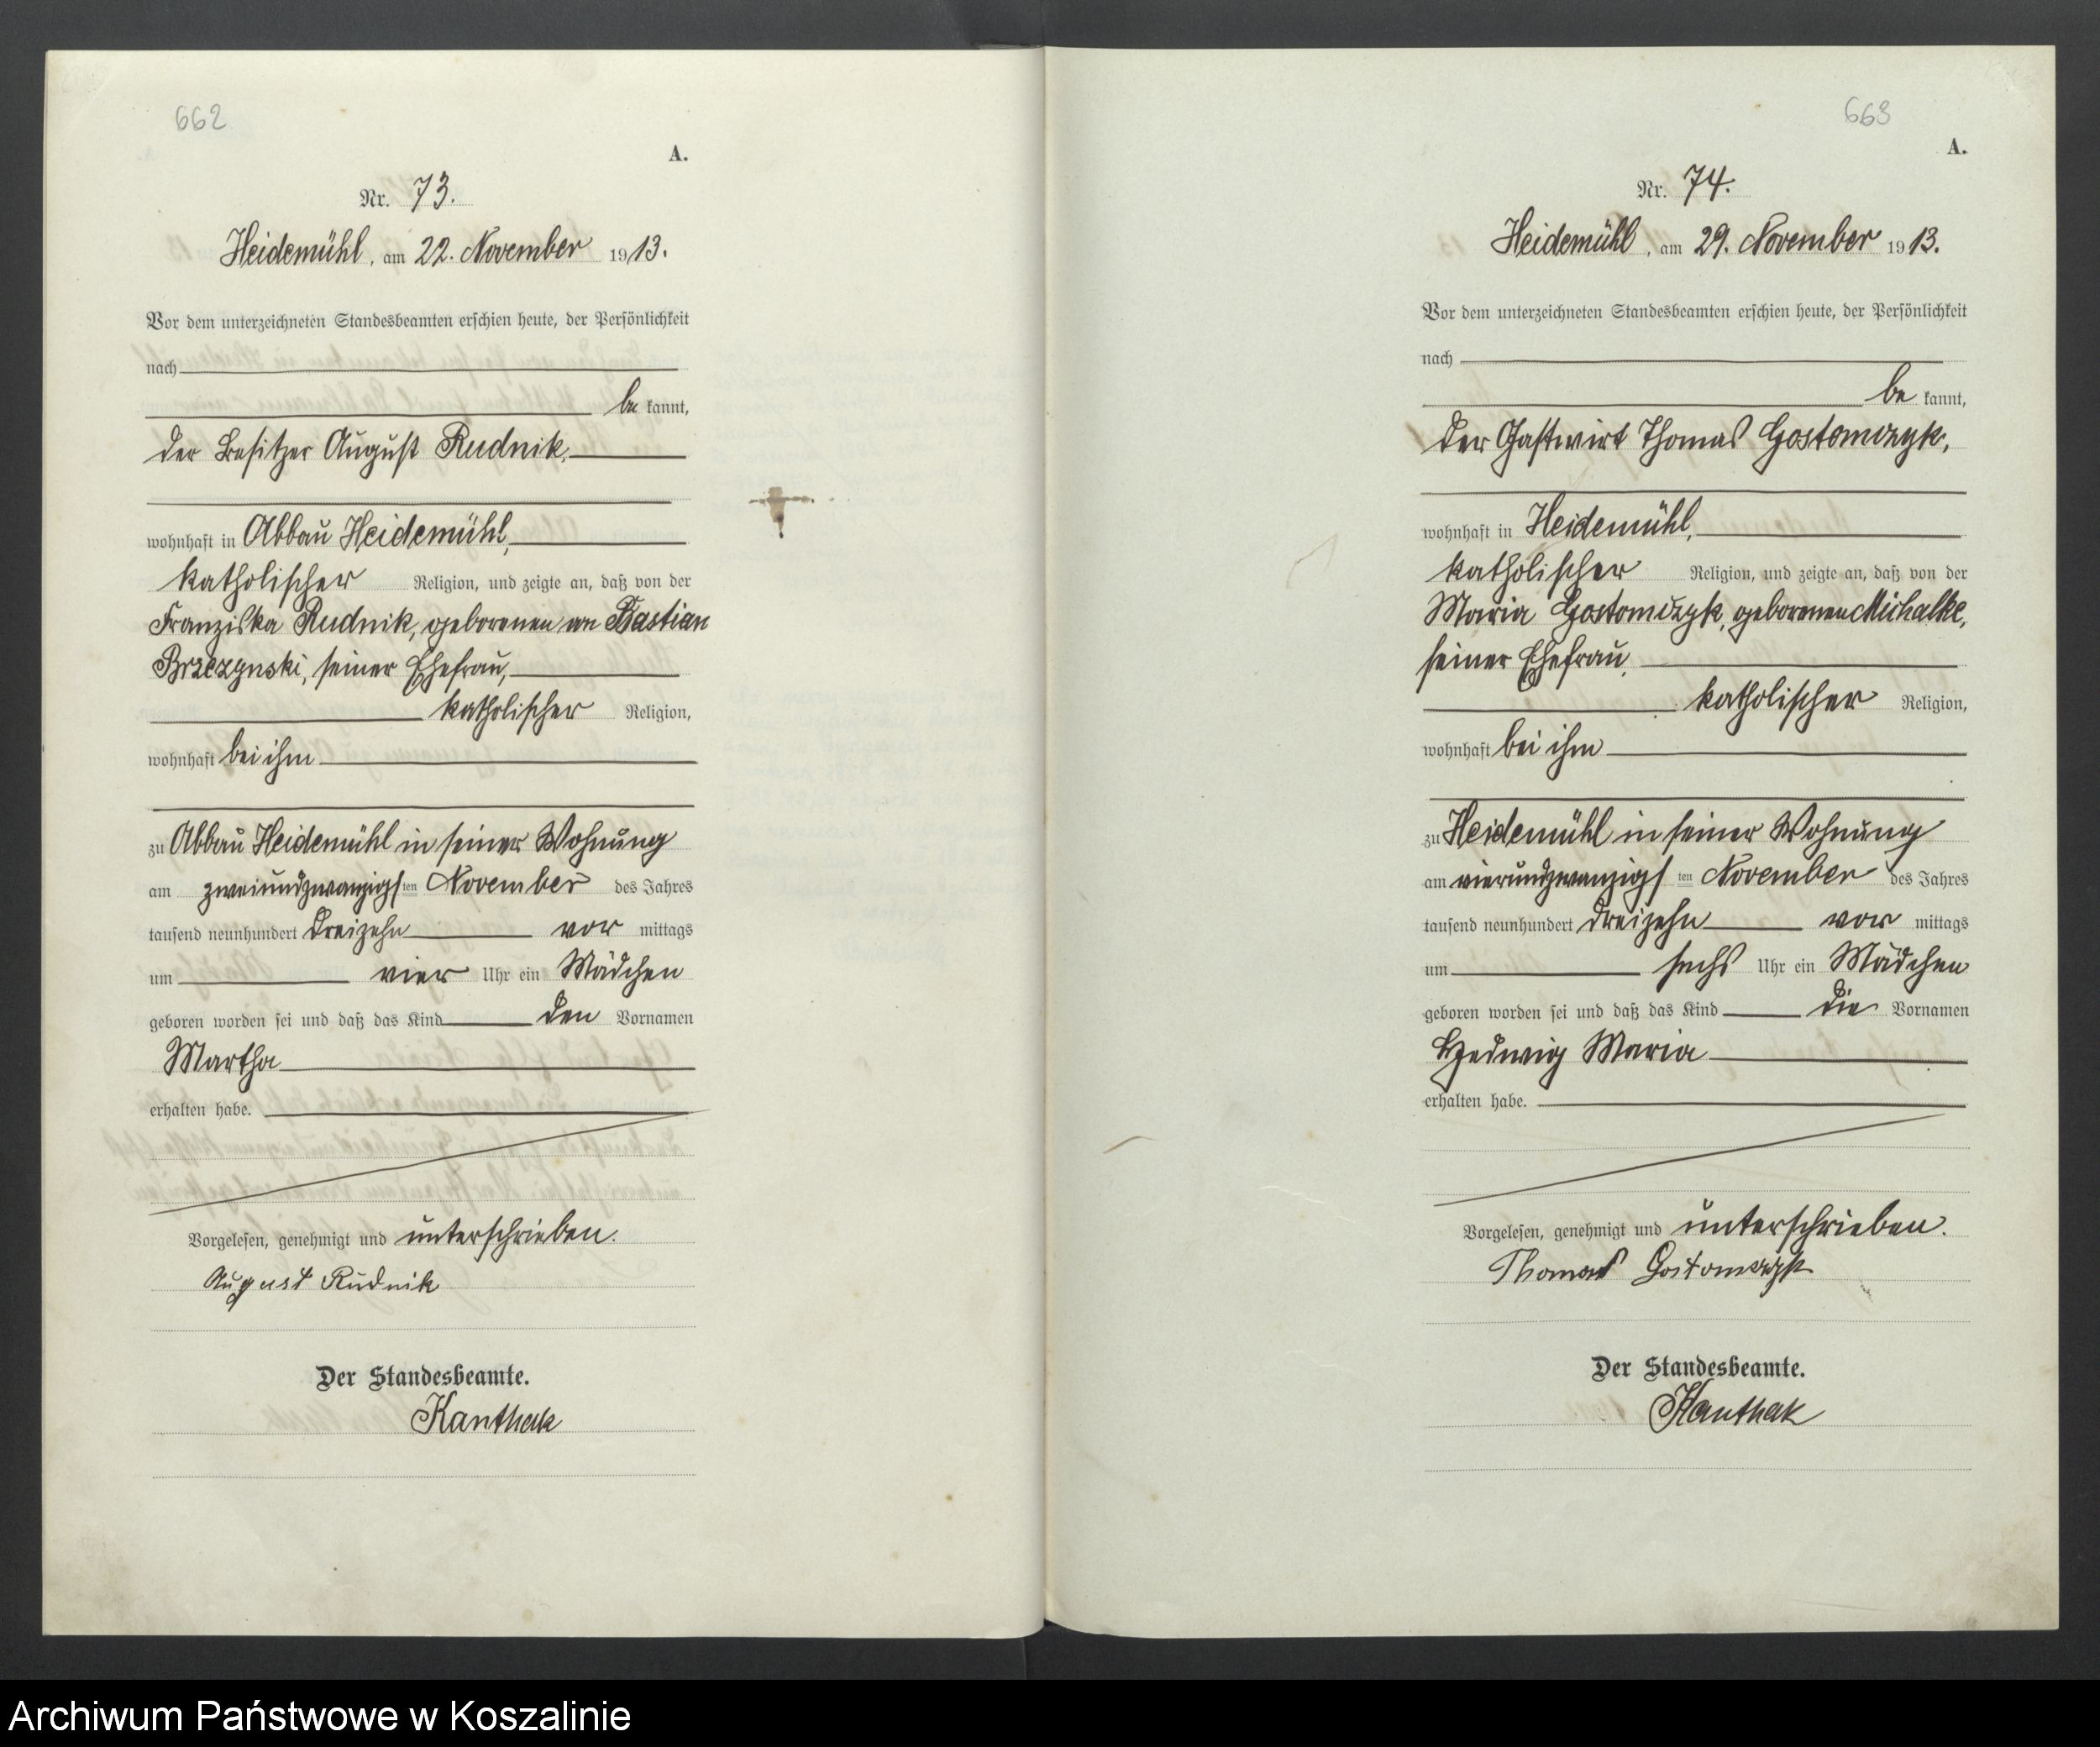 662
A.
Nr. 73.
Heidemühl, am 22. November 1913.
Vor dem unterzeichneten Standesbeamten erschien heute, der Persönlichkeit
nach
be kannt,
der Besitzer August Rudnik,
wohnhaft in Abbau Heidemühl,
katholischer Religion, und zeigte an, daß von der
Franziska Rudnik, geborenen von Bastian
Brzezynski, seiner Ehefrau,
katholischer Religion,
wohnhaft bei ihm
zu Abbau Heidemühl in seiner Wohnung
am zweiundzwanzigsten November des Jahres
tausend neunhundert dreizehn vor mittags
um vier Uhr ein Mädchen
geboren worden sei und daß das Kind den Vornamen
Martha
erhalten habe.
Vorgelesen, genehmigt und unterschrieben.
August Rudnik
Der Standesbeamte.
Kanthak
663
A.
Nr. 74.
Heidemühl, am 29. November 1913.
Vor dem unterzeichneten Standesbeamten erschien heute, der Persönlichkeit
nach
be kannt,
der Gastwirt Thomas Gostomczyk,
wohnhaft in Heidemühl,
katholischer Religion, und zeigte an, daß von der
Maria Gostomczyk, geborenen Michalke,
seiner Ehefrau,
katholischer Religion,
wohnhaft bei ihm
zu Heidemühl in seiner Wohnung
am vierundzwanzigsten November des Jahres
tausend neunhundert dreizehn vor mittags
um sechs Uhr ein Mädchen
geboren worden sei und daß das Kind die Vornamen
Hedwig Maria
erhalten habe.
Vorgelesen, genehmigt und unterschrieben.
Thomas Gostomczyk
Der Standesbeamte.
Kanthak
Archiwum Państwowe w Koszalinie